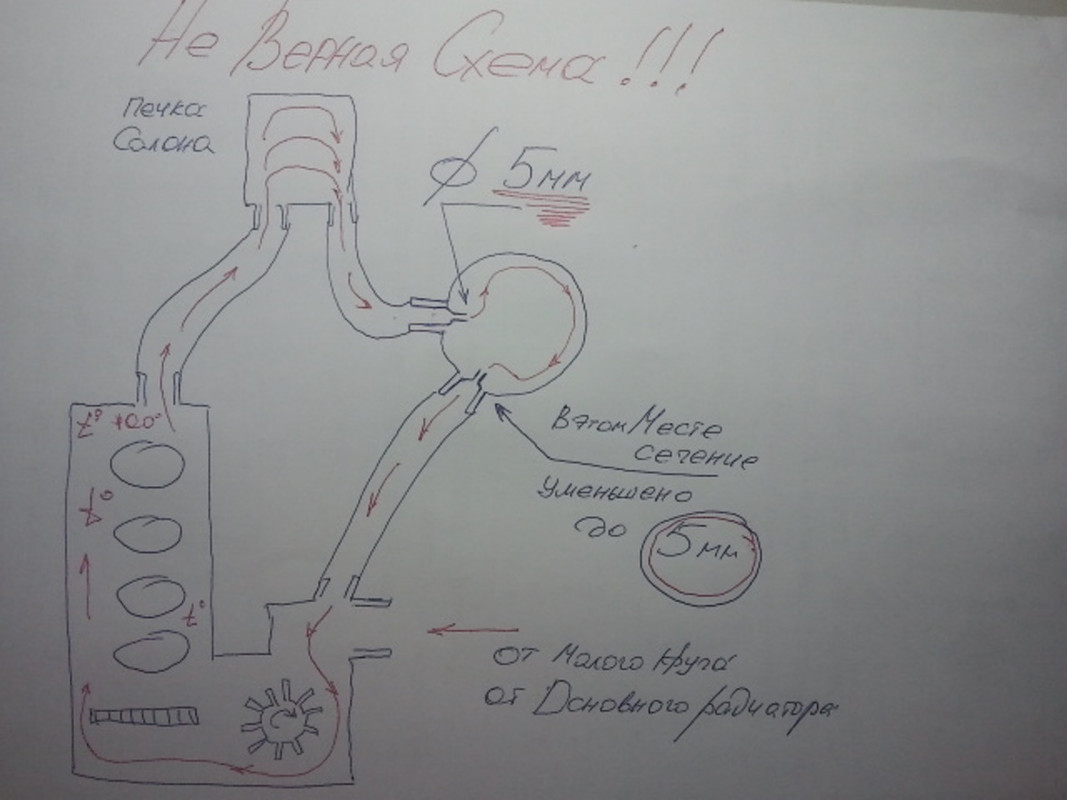 Не Верная Схема!!!
Печка
Салона
⌀ 5мм
В этом Месте
сечение
уменьшено
до
5мм
t° +90°
t°
t°
от Малого круга
от Основного радиатора